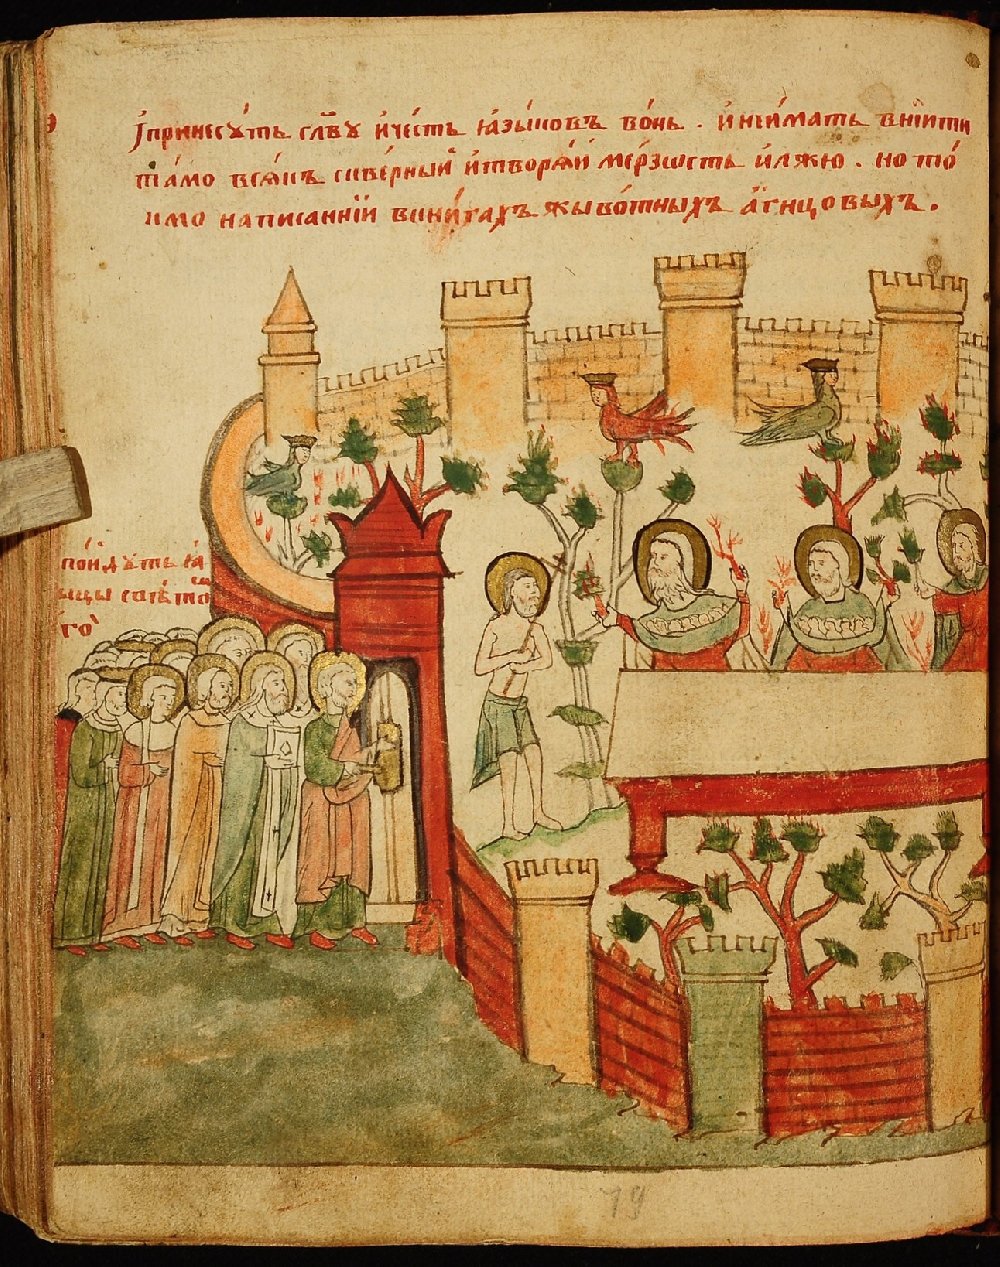 И҆принесу́тъ сла́ву и҆че́сть ꙗ҆зы́ковъ во́нь . и҆не́имать вни́ти
та́мо вся́къ скве́рный и҆творя́й ме́рзость и҆лжю . но то́
кмо написаннїи вкни́гахъ жыво́тныхъ а҆́гнцовыхъ .
по́идутъ ꙗ҆
го̀
19